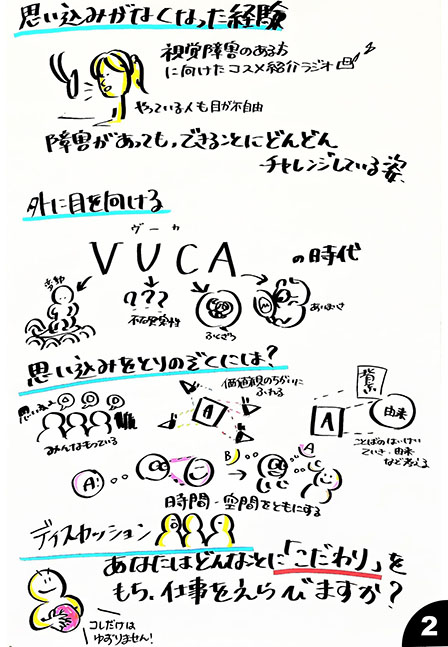 思い込みがなくなった経験
視覚障害のある方
に向けたコスメ紹介ラジオ
やっている人も目が不自由
障害があっても、できることにどんどん
チャレンジしている姿
外に目を向ける
ヴーカ
VUCA の時代
変動
???
不確実性
ふくざつ
あいまいさ
思い込みをとりのぞくには?
思い込み
みんなもっている
A
価値観のちがいに
ふれる
A
背景
由来
ことばのはいけい
ていぎ・由来
など考える
A
B
A
時間・空間をともにする
ディスカッション
あなたはどんなことに「こだわり」を
もち、仕事をえらびますか?
コレだけは
ゆずりません!
2